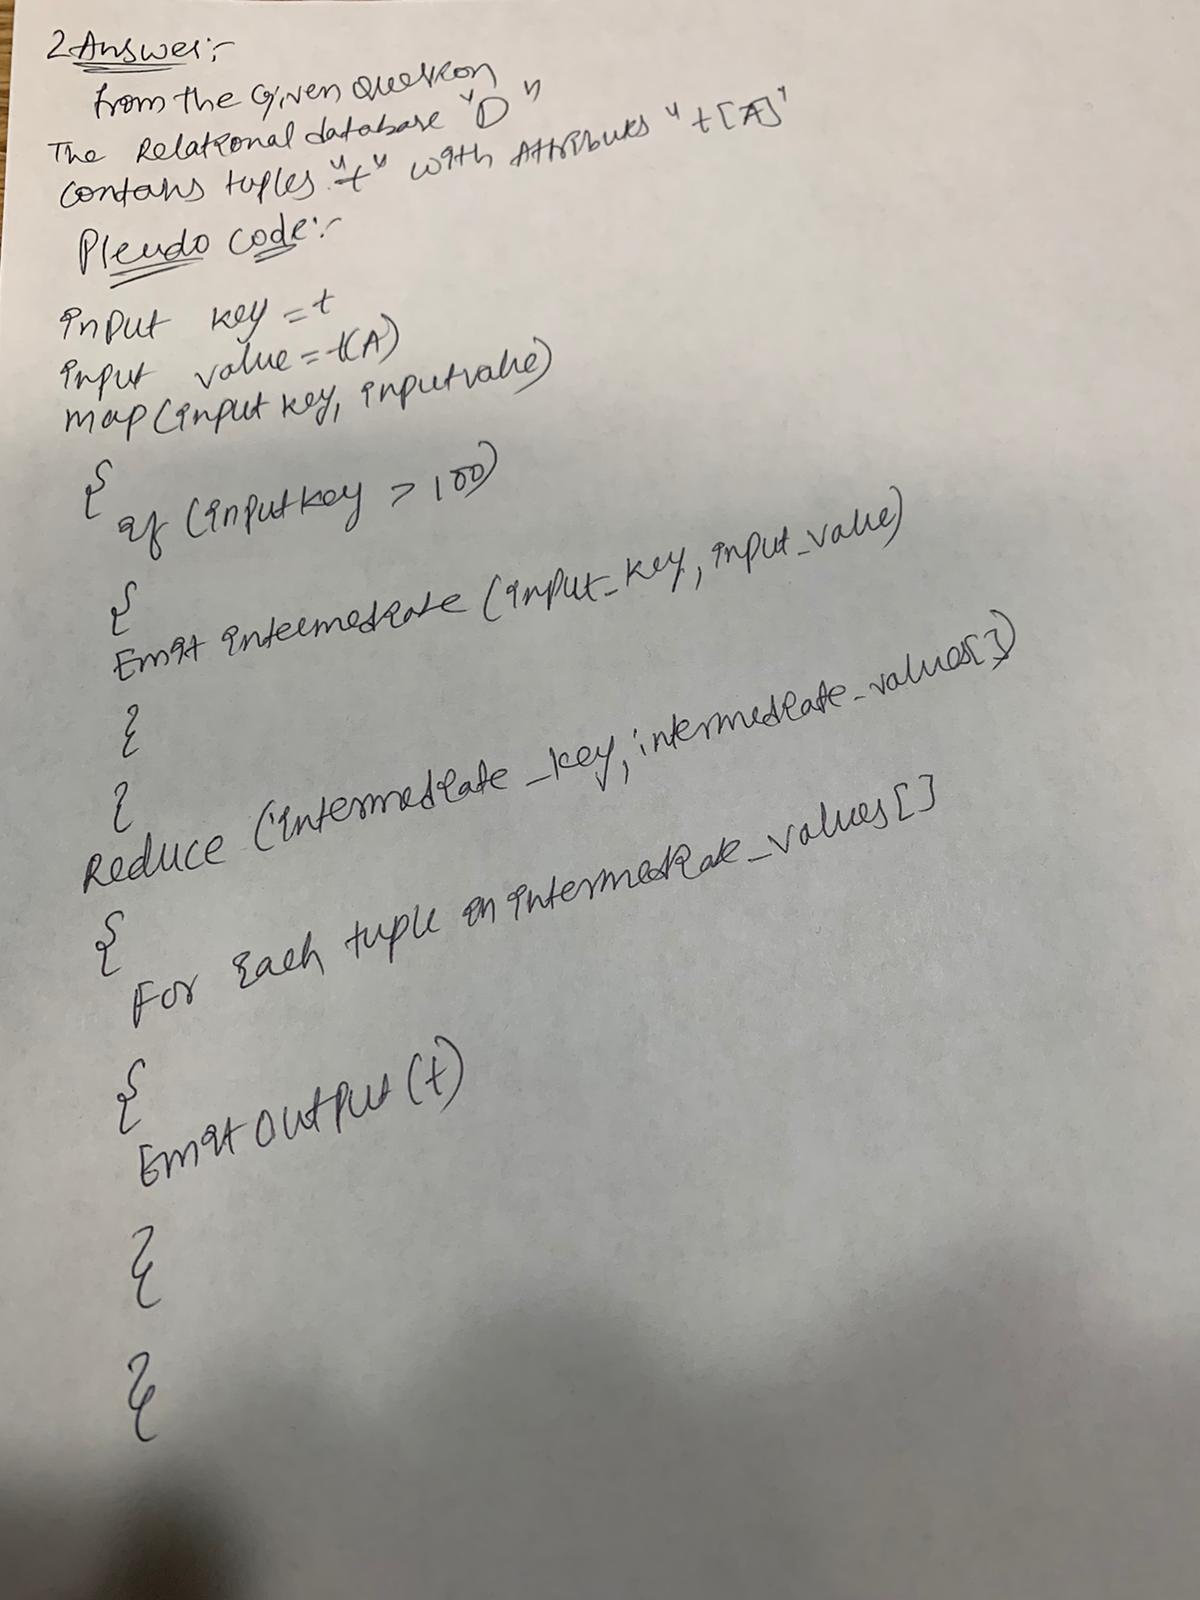 2 Answer:-
from the Given Question
The Relational database "D"
contains tuples "t" with Attributes "t[A]"
Pseudo code:-
input key = t
input value = t(A)
map (input key, input value)
{
if (input key > 100)
{
Emit intermediate (input_key, input_value)
}
}
Reduce (intermediate_key, intermediate_values[])
{
For Each tuple in intermediate_values[]
{
Emit output (t)
}
}